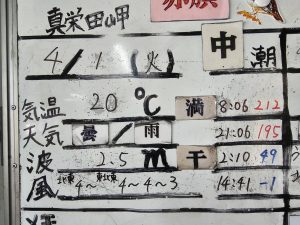 真栄田岬
赤旗
中 潮
4/1(火)
気温 20℃ 満 8:06 212
天気 曇/雨 21:06 195
波 2.5m 干 2:10 49
風 北東4~ 東北東4~4~3 14:41 -1